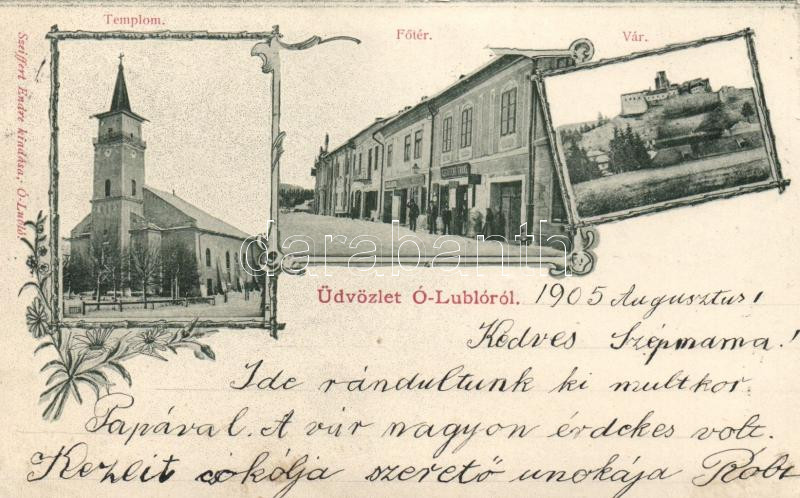 Templom.
Főtér.
Vár.
Szeiffert Endre kiadása, Ó-Lubló.
darabanth
Üdvözlet Ó-Lublóról. 1905 Augusztus 1
Kedves Szépmama!
Ide rándultunk ki multkor
Papával. A vár nagyon érdekes volt.
Kezeit csókolja szerető unokája